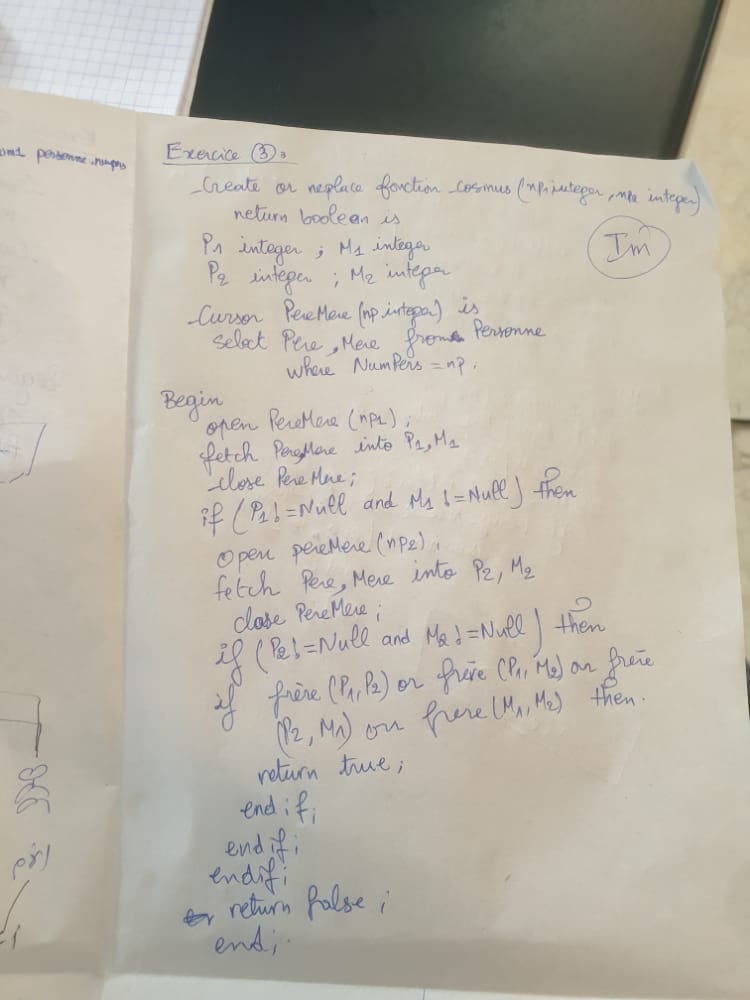 um1 personne.numpers
Exercice ③:
Create or replace fonction cosmus (np1 integer, np2 integer)
return boolean is
P1 integer ; M1 integer
P2 integer ; M2 integer
Im
Cursor PereMere (np integer) is
select Pere, Mere from Personne
where NumPers = np.
Begin
open PereMere (np1) ;
fetch PereMere into P1, M1
close PereMere ;
if (P1 != Null and M1 != Null) then
open pereMere (np2) ;
fetch Pere, Mere into P2, M2
close PereMere ;
if (P2 != Null and M2 != Null) then
if frère (P1, P2) or frère (P1, M2) or frère
(P2, M1) or frere (M1, M2) then.
return true ;
end if ;
end if ;
endif ;
return false ;
end ;